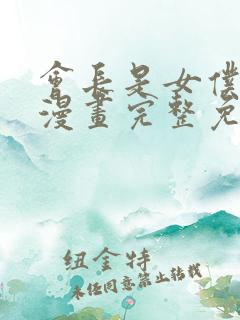 會長是女僕
漫畫完整免
纽金特
未经同意禁止转载